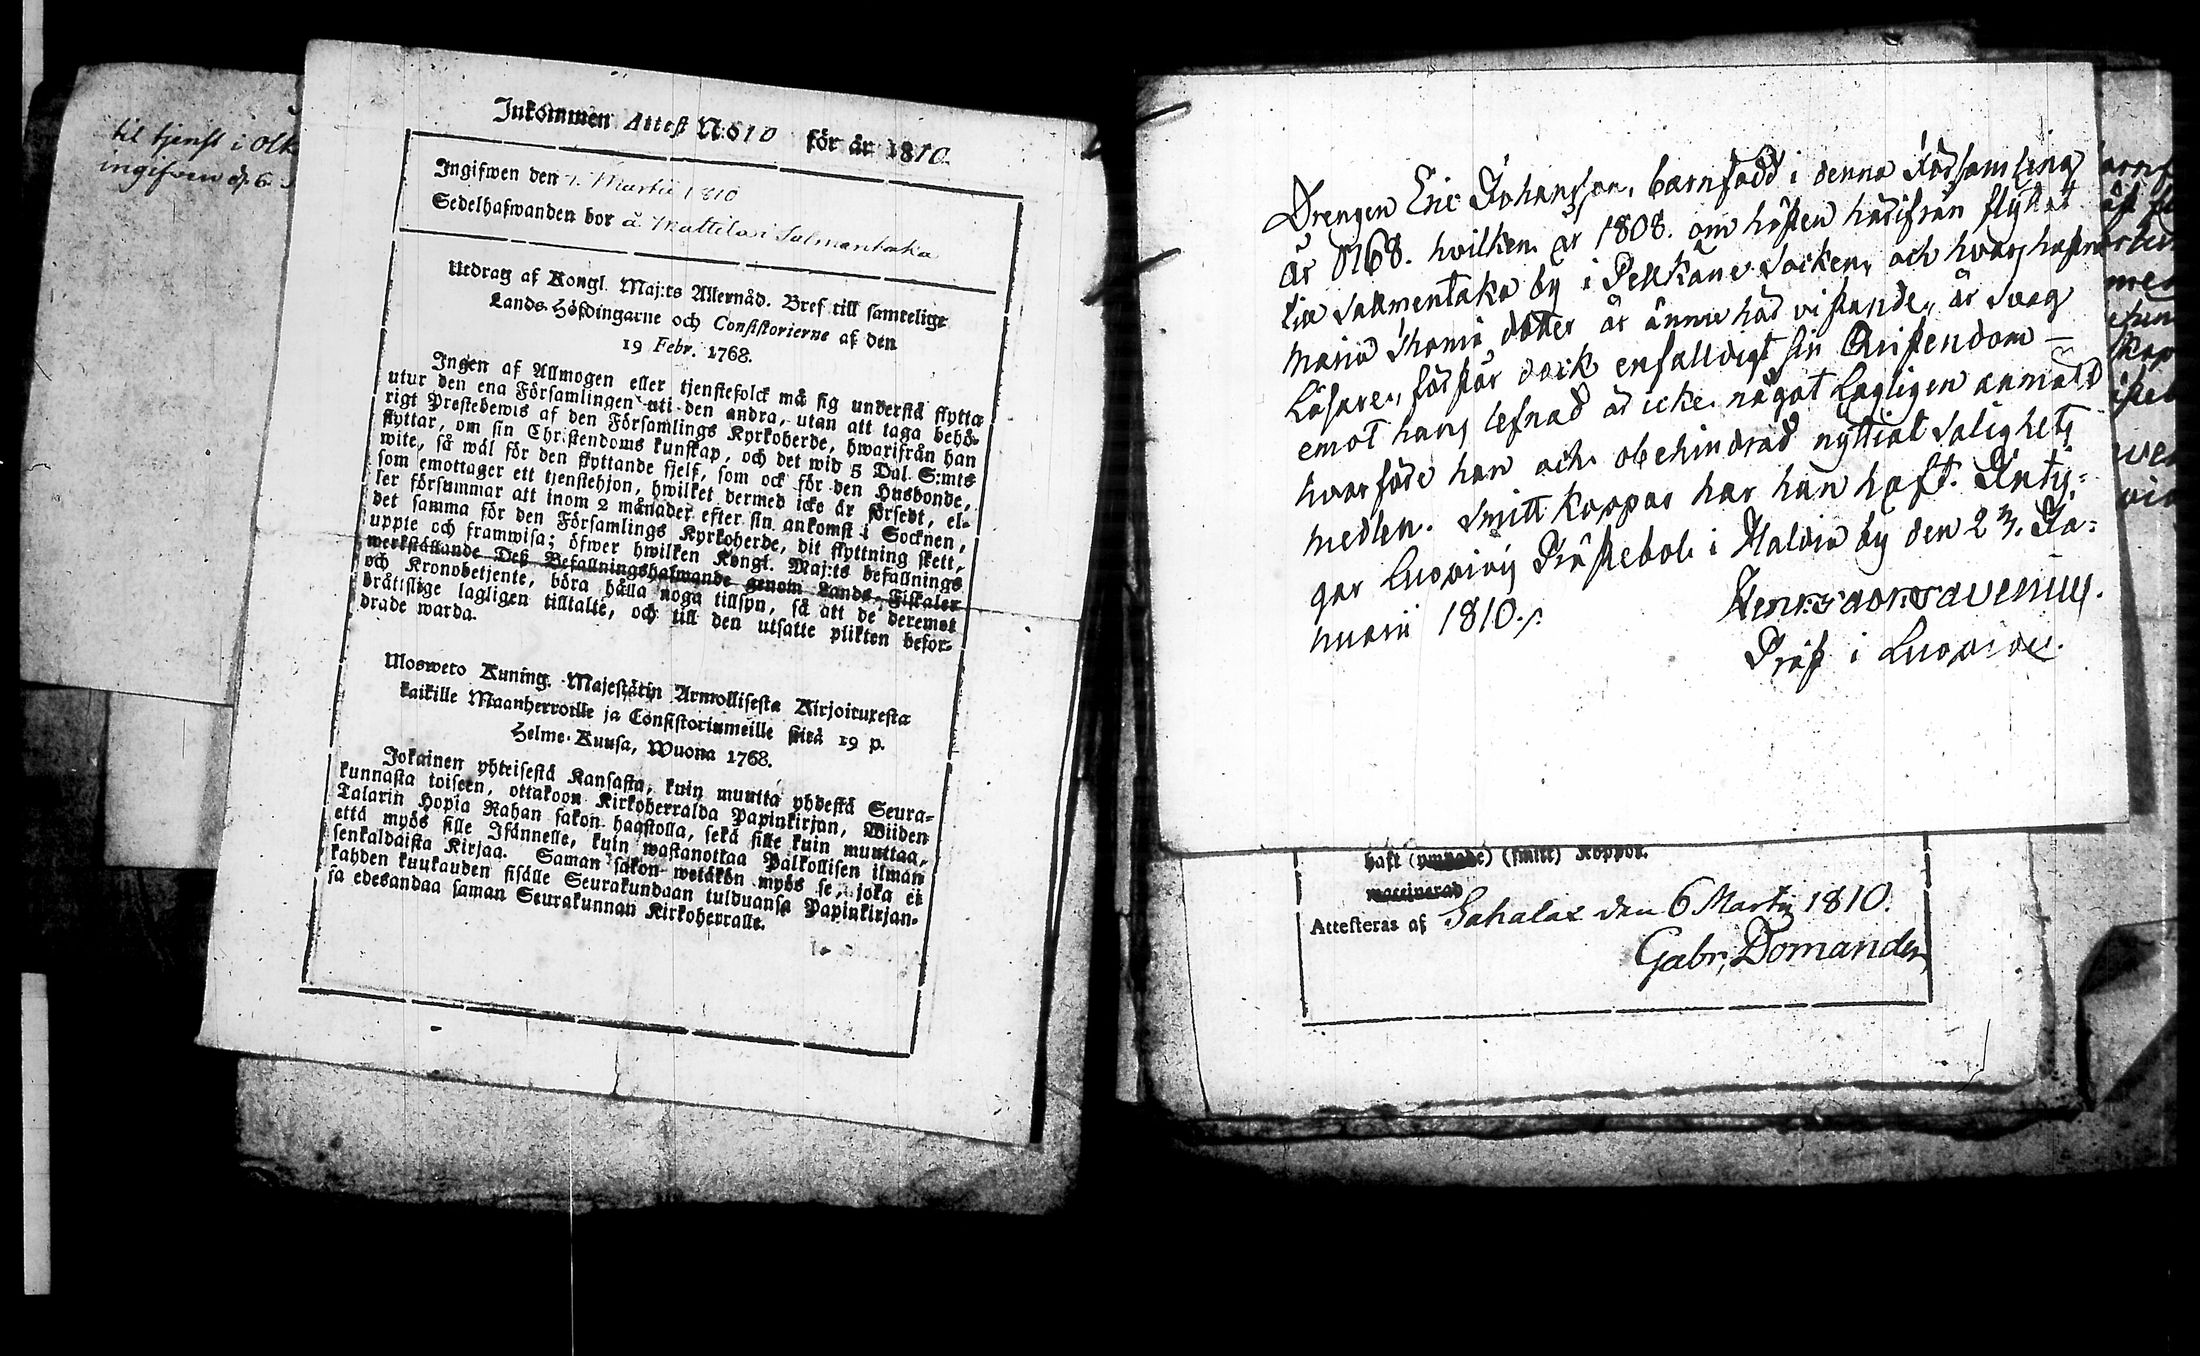 til tjenst i
ingifven d. 6
Inkommen Attest N:o 10 för år 1810.
Ingifwen den 7. Martii 1810
Sedelhafwanden bor å Mattila i Salmentaka
Utdrag af Kongl. Maj:ts Allernåd. Bref till samtelige
Lands-Höfdingarne och Consistorierne af den
19 Febr. 1768.
Ingen af Allmogen eller tjenstefolck må sig understå flytta
utur den ena Församlingen uti den andra, utan att taga behö-
rigt Prestebewis af den Församlings Kyrkoherde, hwarifrån han
flyttar, om sin Christendoms kunskap, och det wid 5 Dal. S:mts
wite, så wäl för den flyttande sjelf, som ock för den Husbonde,
som emottager ett tjenstehjon, hwilket dermed icke är försedt, el-
ler försummar att inom 2 månader efter sin ankomst i Socknen,
det samma för den Församlings Kyrkoherde, dit flyttning skett,
uppte och framwisa; öfwer hwilken Kongl. Maj:ts befallnings
werkställande Deß Befallningshafwande genom Lands-Fiskaler
och Kronobetjente, böra hålla noga tillsyn, så att de deremot
bråttslige lagligen tilltalte, och till den utsatte plikten befor-
drade warda.
Ulosweto Kuning. Majestätin Armollisesta Kirjoituxesta
kaikille Maanherroille ja Consistoriumeille siitä 19 p.
Helme-Kuusa, Wuona 1768.
Jokainen yhteisestä Kansasta, kuin muutta yhdestä Seura-
kunnasta toiseen, ottakoon Kirkoherralda Papinkirjan, Wiiden
Talarin Hopia Rahan sakon haastolla, sekä sille kuin muuttaa,
että myös sille Isännelle, kuin wastanottaa Palkollisen ilman
senkaldaista Kirjaa. Saman sakon wetäkön myös se, joka ei
kahden kuukauden sisälle Seurakundaan tulduansa Papinkirjan-
sa edesandaa saman Seurakunnan Kirkoherralle.
Drengen Eric Johansson, barnfödd i denna Församling
år 1768. hvilken år 1808. om hösten hädifrån flyttat
till Sallmentaka by i Pelkäne Socken, och hvars hustru
Maria Thomæ dotter är ännu här vistande, är Svag
Läsare, förstår dock enfalldigt sin Christendom —
emot hans lefnad är icke något Lagligen anmält
hvarföre han och obehindrad nyttiat Salighets
medlen. Smitt koppor har han haft. Inty-
gar Luopiois Prästebol i Haltia by den 2 . Ja-
nuarii 1810.
Präst i Luopiois.
haft (smitt) Koppor.
vaccinerad
Attesteras af Sahalax den 6 Martij 1810.
Gabr. Domander